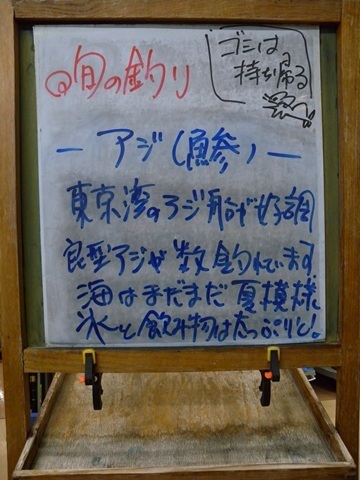 旬の釣り
ゴミは
持ち帰る
ーアジ(鯵)ー
東京湾のアジ船が好調
良型アジが数釣れています
海はまだまだ夏模様
氷と飲み物はたっぷりと!